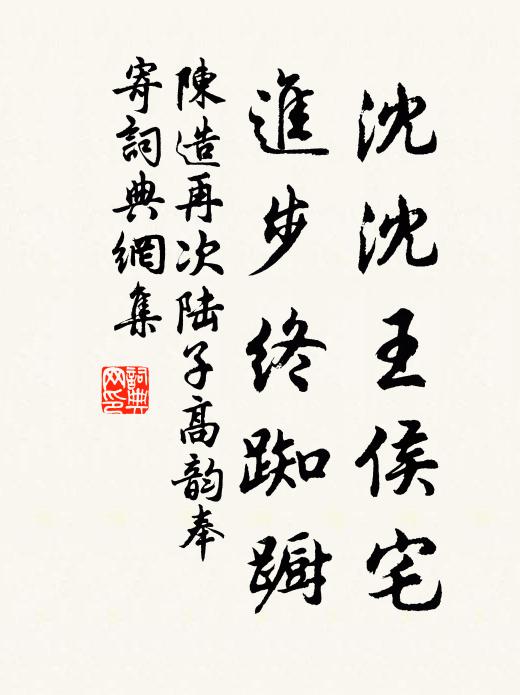 沈沈王侯宅
進步終踟躕
陳造再次陸子高韵奉
寄詞典網集
詞典网印